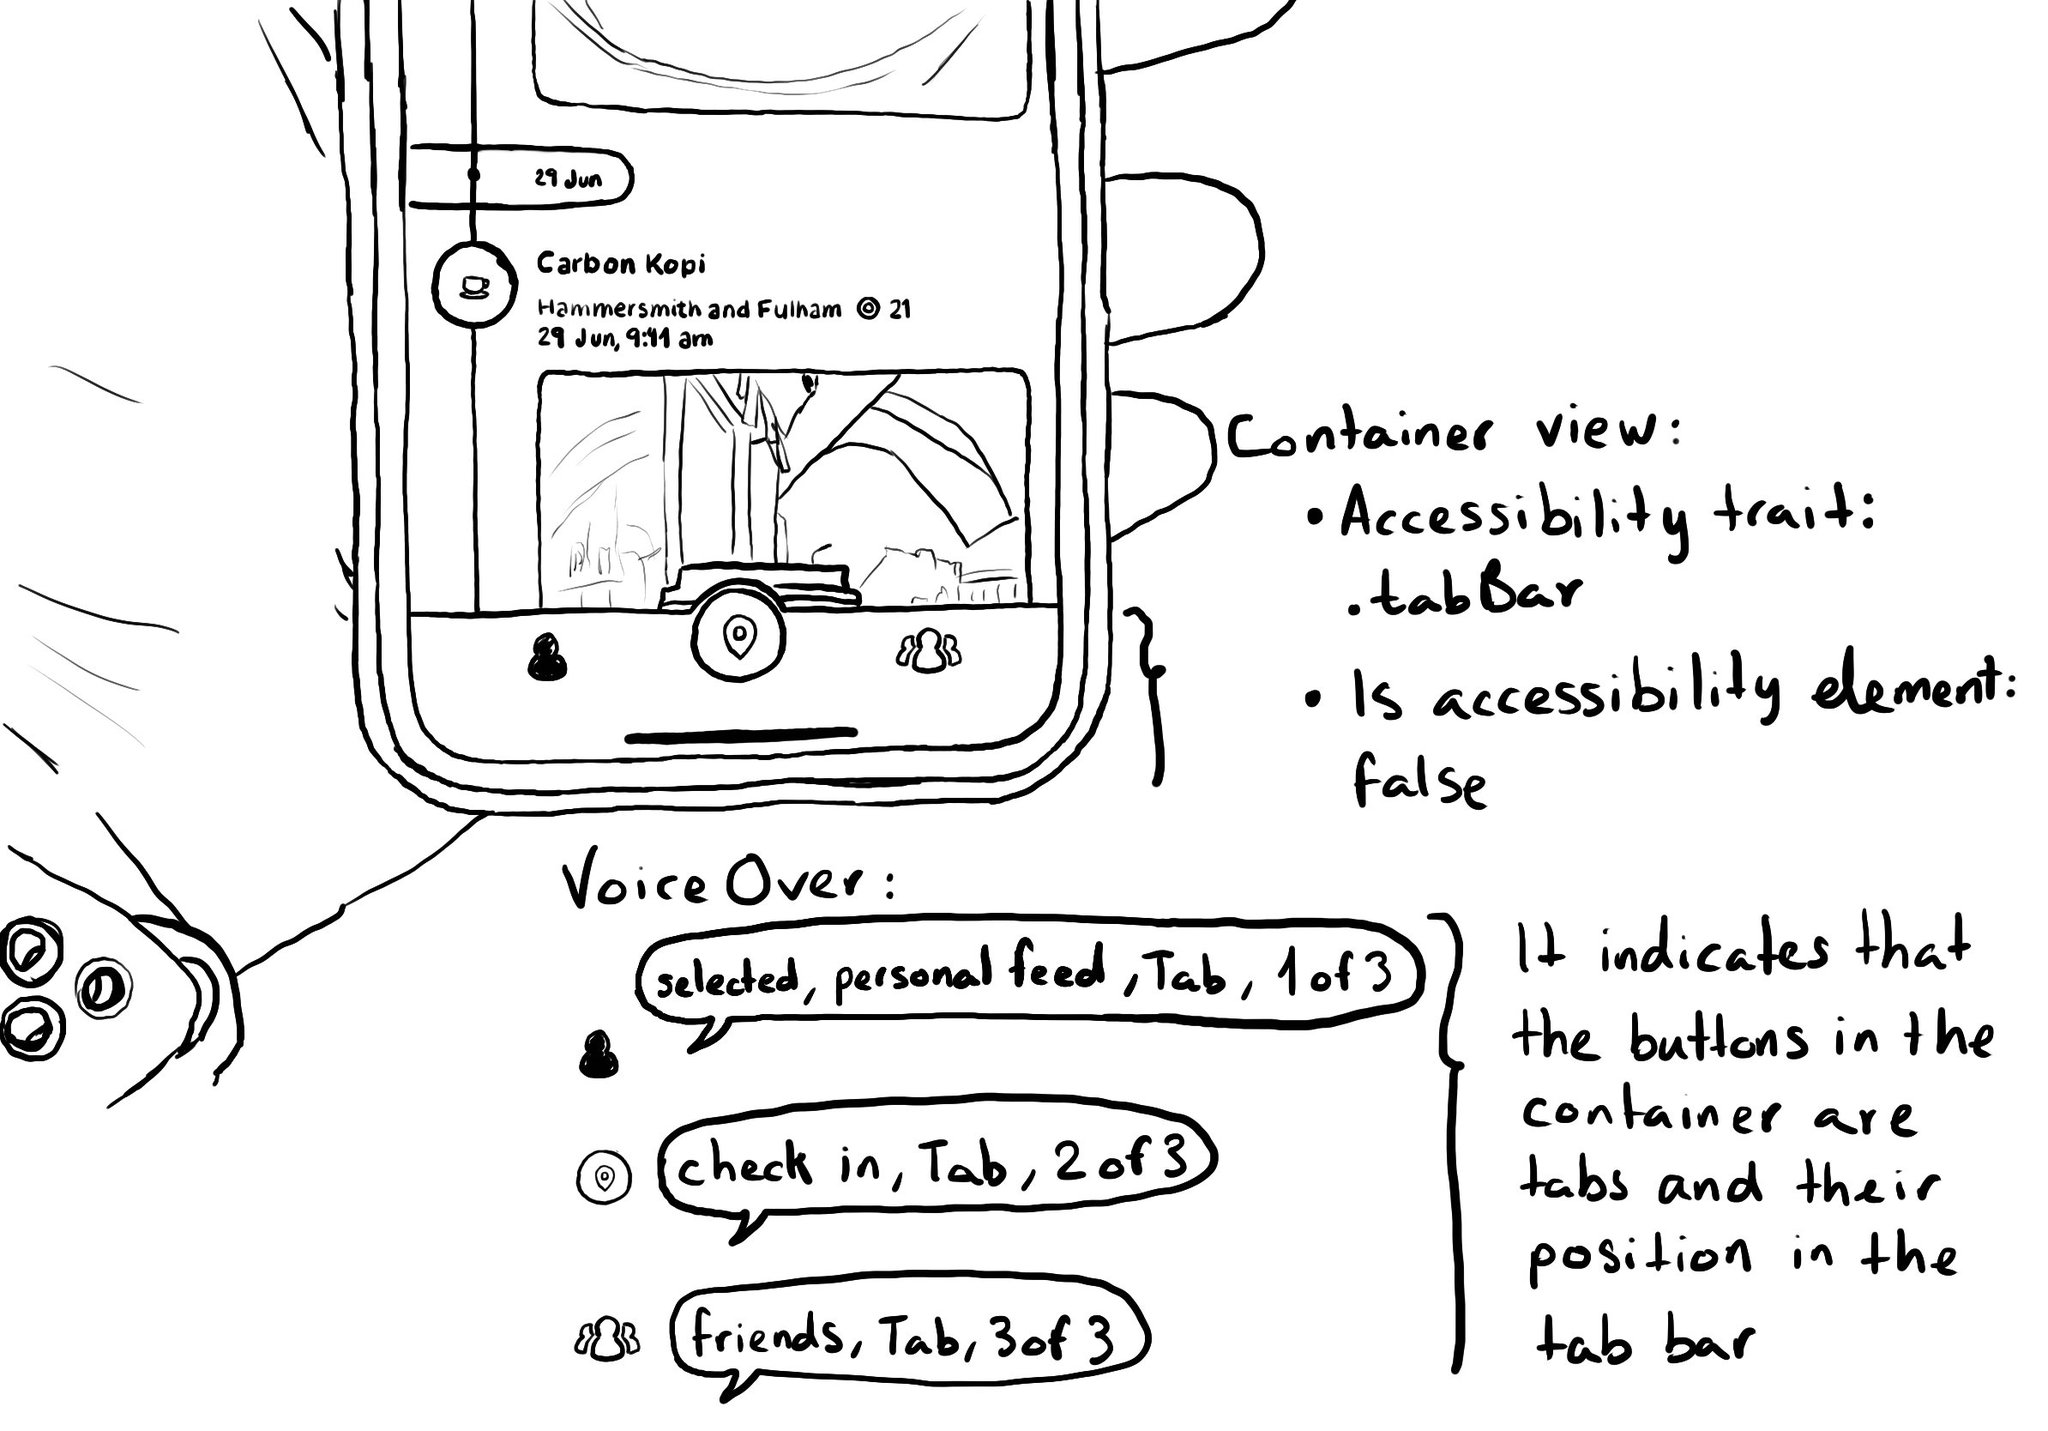 29 Jun
Carbon Kopi
Hammersmith and Fulham 21
29 Jun, 9:41 am
Container view:
• Accessibility trait:
.tabBar
• Is accessibility element:
false
VoiceOver:
selected, personal feed, Tab, 1 of 3
check in, Tab, 2 of 3
friends, Tab, 3 of 3
It indicates that
the buttons in the
container are
tabs and their
position in the
tab bar